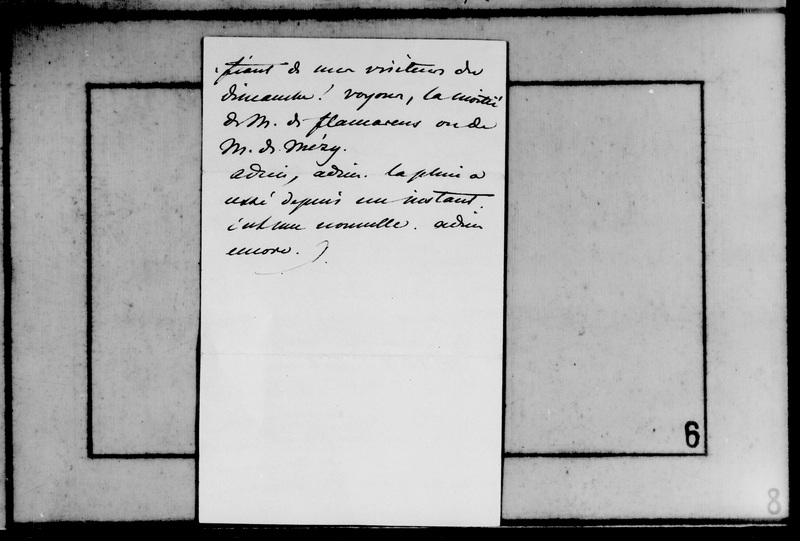 fiant de mes visiteurs du
dimanche! voyons, la moitié
de M. de flamarens ou de
M. de Mézy.
adieu, adieu. la pluie a
cessé depuis un instant.
c'est une nouvelle. adieu
encore.
6
8